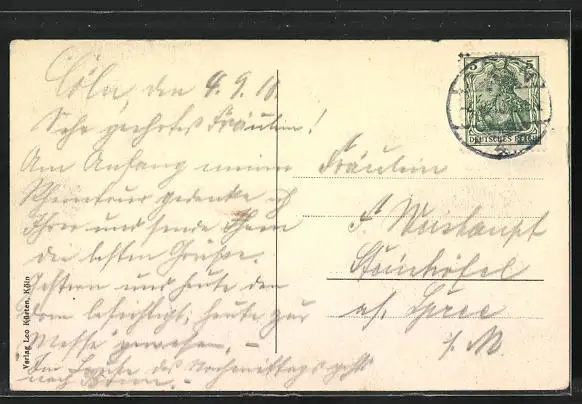 Cöln, den 4.9.10
Sehr geehrtes Fräulein!
Am Anfang meiner
Rheintour gedenke ich
Ihrer und sende Ihnen
die besten Grüße.
Gestern und heute den
Dom besichtigt, heute zur
Messe gewesen. –
Im Laufe des Nachmittags geht's
nach Bonn. –
Fräulein
Steinhöfel
a/. Spree
i/M
5 5
DEUTSCHES REICH
Verlag Leo Kürten, Köln